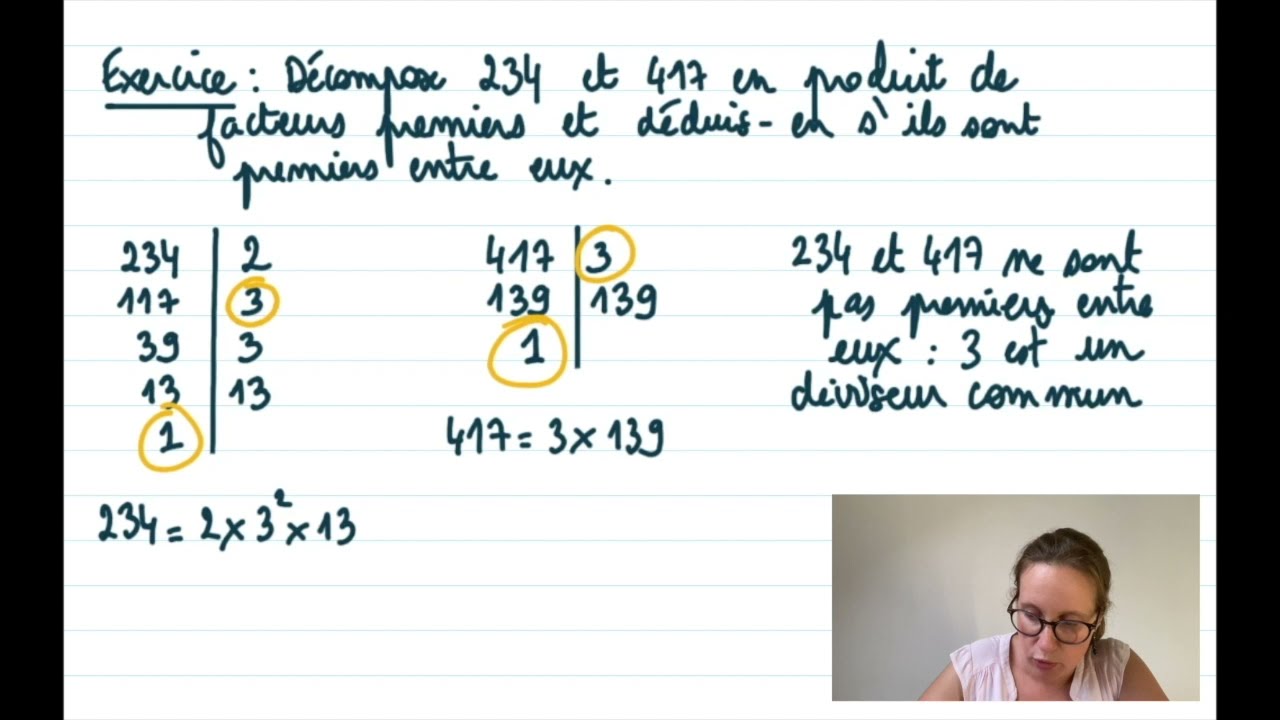 Exercice : Décompose 234 et 417 en produit de
facteurs premiers et déduis-en s'ils sont
premiers entre eux.
234 | 2
117 | 3
39 | 3
13 | 13
1 |
234 = 2 × 3² × 13
417 | 3
139 | 139
1 |
417 = 3 × 139
234 et 417 ne sont
pas premiers entre
eux : 3 est un
diviseur commun